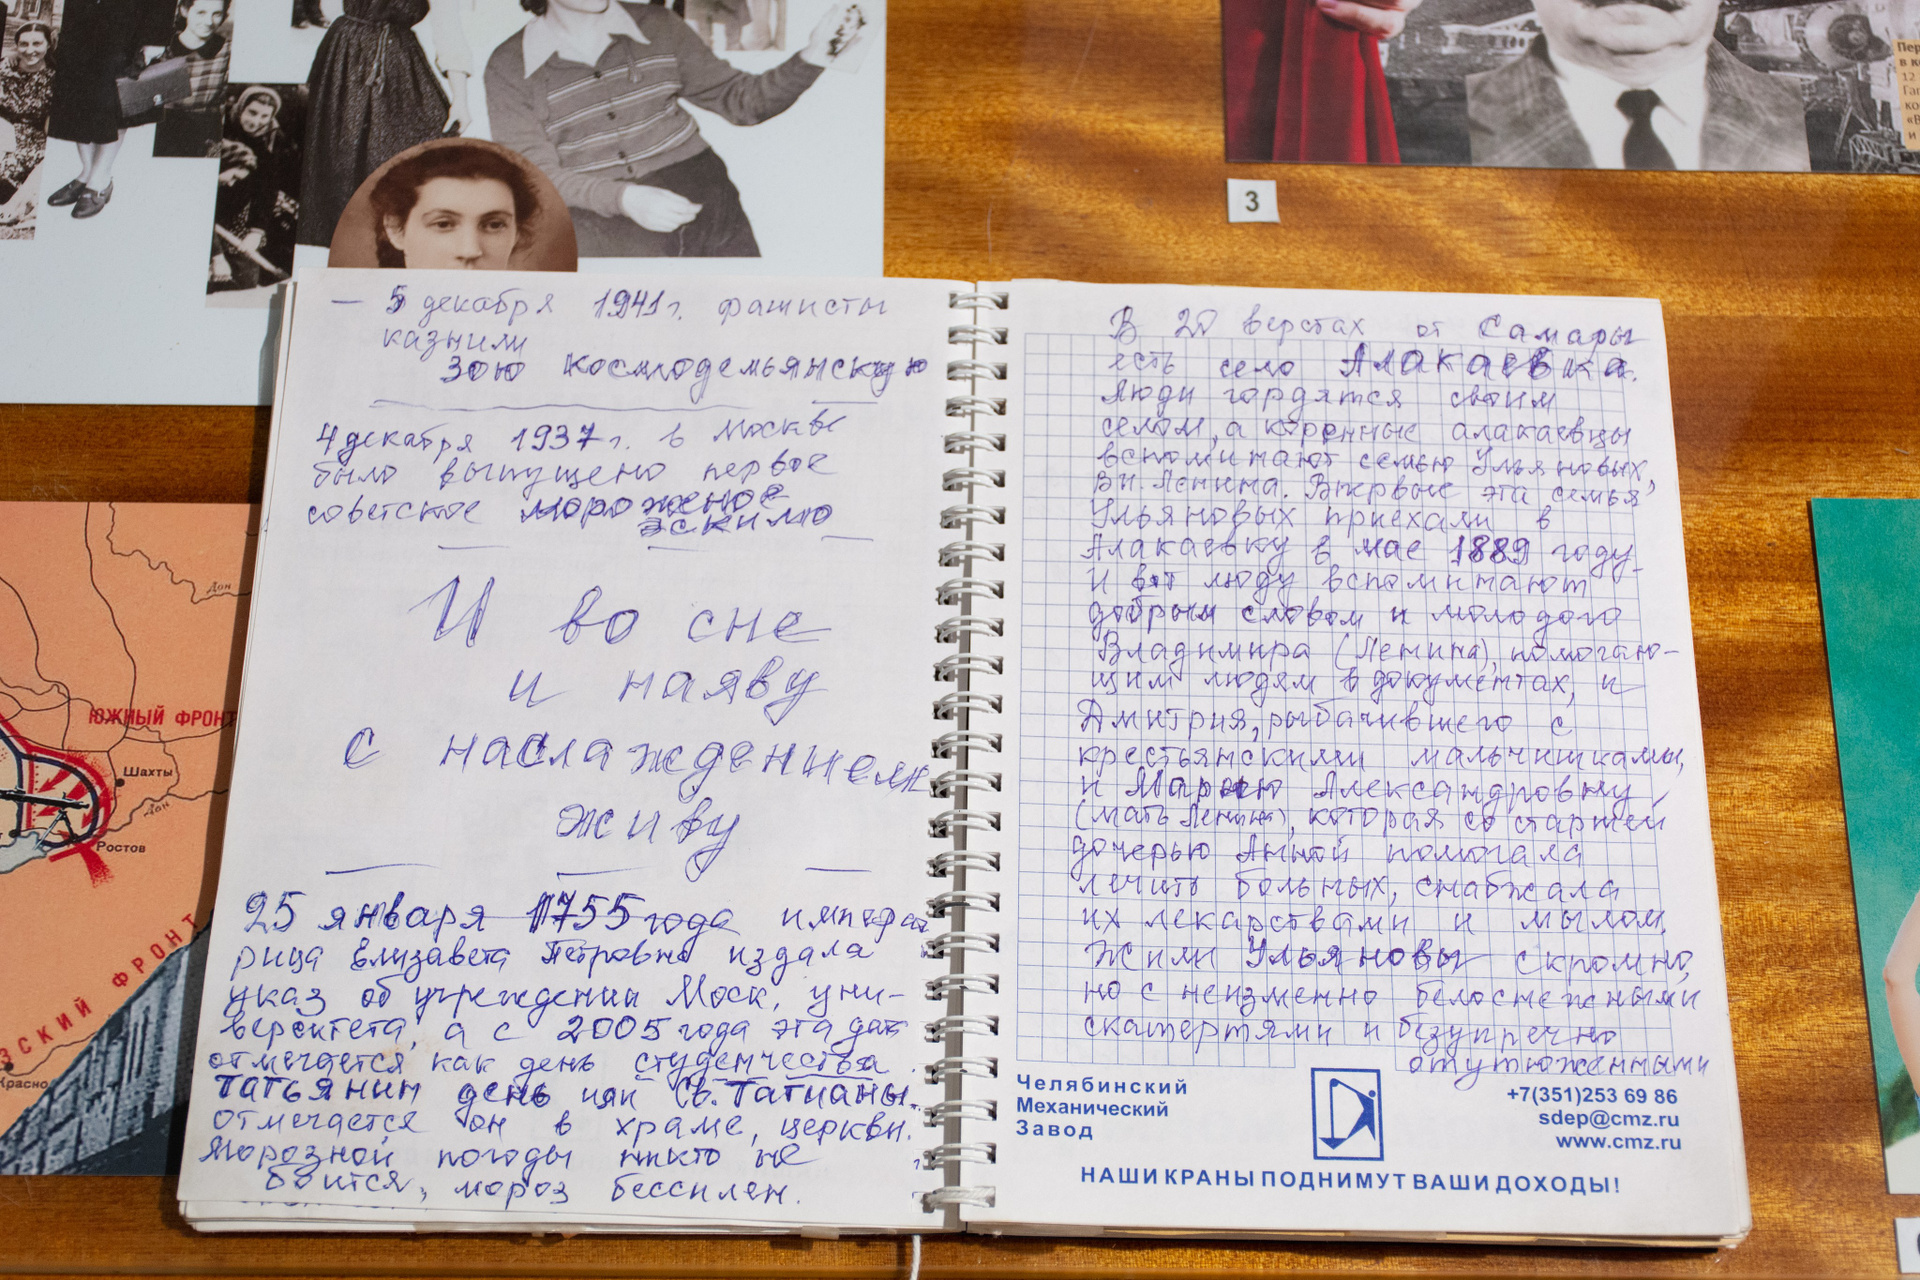 — 5 декабря 1941 г. фашисты
казнили
Зою Космодемьянскую
4 декабря 1937 г. в Москве
было выпущено первое
советское мороженое
эскимо
И во сне
и наяву
с наслаждением
живу
25 января 1755 года императ
рица Елизавета Петровна издала
указ об учреждении Моск. уни-
верситета, а с 2005 года эта дат
отмечается как день студенчества
Татьянин день или Св. Татианы.
отмечается он в храме, церкви.
Морозной погоды никто не
боится, мороз бессилен.
В 20 верстах от Самары
есть село Алакаевка.
Люди гордятся своим
селом, а коренные алакаевцы
вспоминают семью Ульяновых,
Вл. Ленина. Впервые эта семья
Ульяновых приехали в
Алакаевку в мае 1889 году.
И вот люду вспоминают
добрым словом и молодого
Владимира (Ленина), помогаю-
щим людям в документах, и
Дмитрия, рыбачившего с
крестьянскими мальчишками,
и Марию Александровну
(мать Ленина), которая со старшей
дочерью Анной помогала
лечить больных, снабжала
их лекарствами и мылом.
Жили Ульяновы скромно,
но с неизменно белоснежными
скатертями и безупречно
отутюженными
Челябинский
Механический
Завод
+7(351)253 69 86
sdep@cmz.ru
www.cmz.ru
НАШИ КРАНЫ ПОДНИМУТ ВАШИ ДОХОДЫ!
3
Пер
в к
12
Гаг
ко
«В
и
Дон
ЮЖНЫЙ ФРОНТ
Шахты
Дон
Ростов
ЗСКИЙ ФРОНТ
Красно